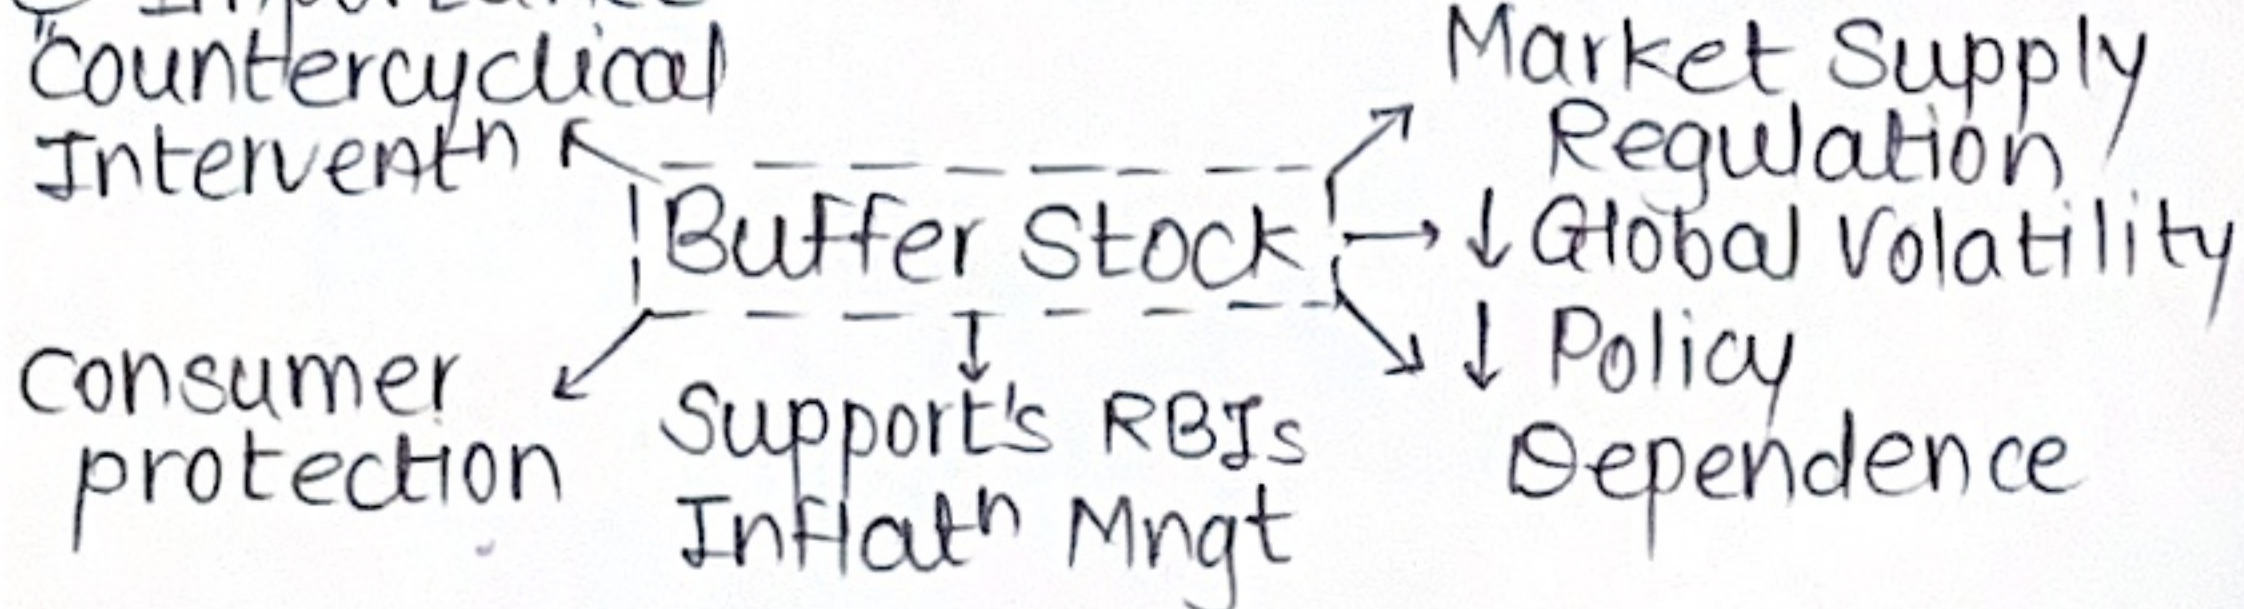 "Countercyclical
Interventn
Market Supply
Regulation
Buffer Stock
↓ Global Volatility
↓ Policy
Dependence
Consumer
protection
Support's RBIs
Inflatn Mngt